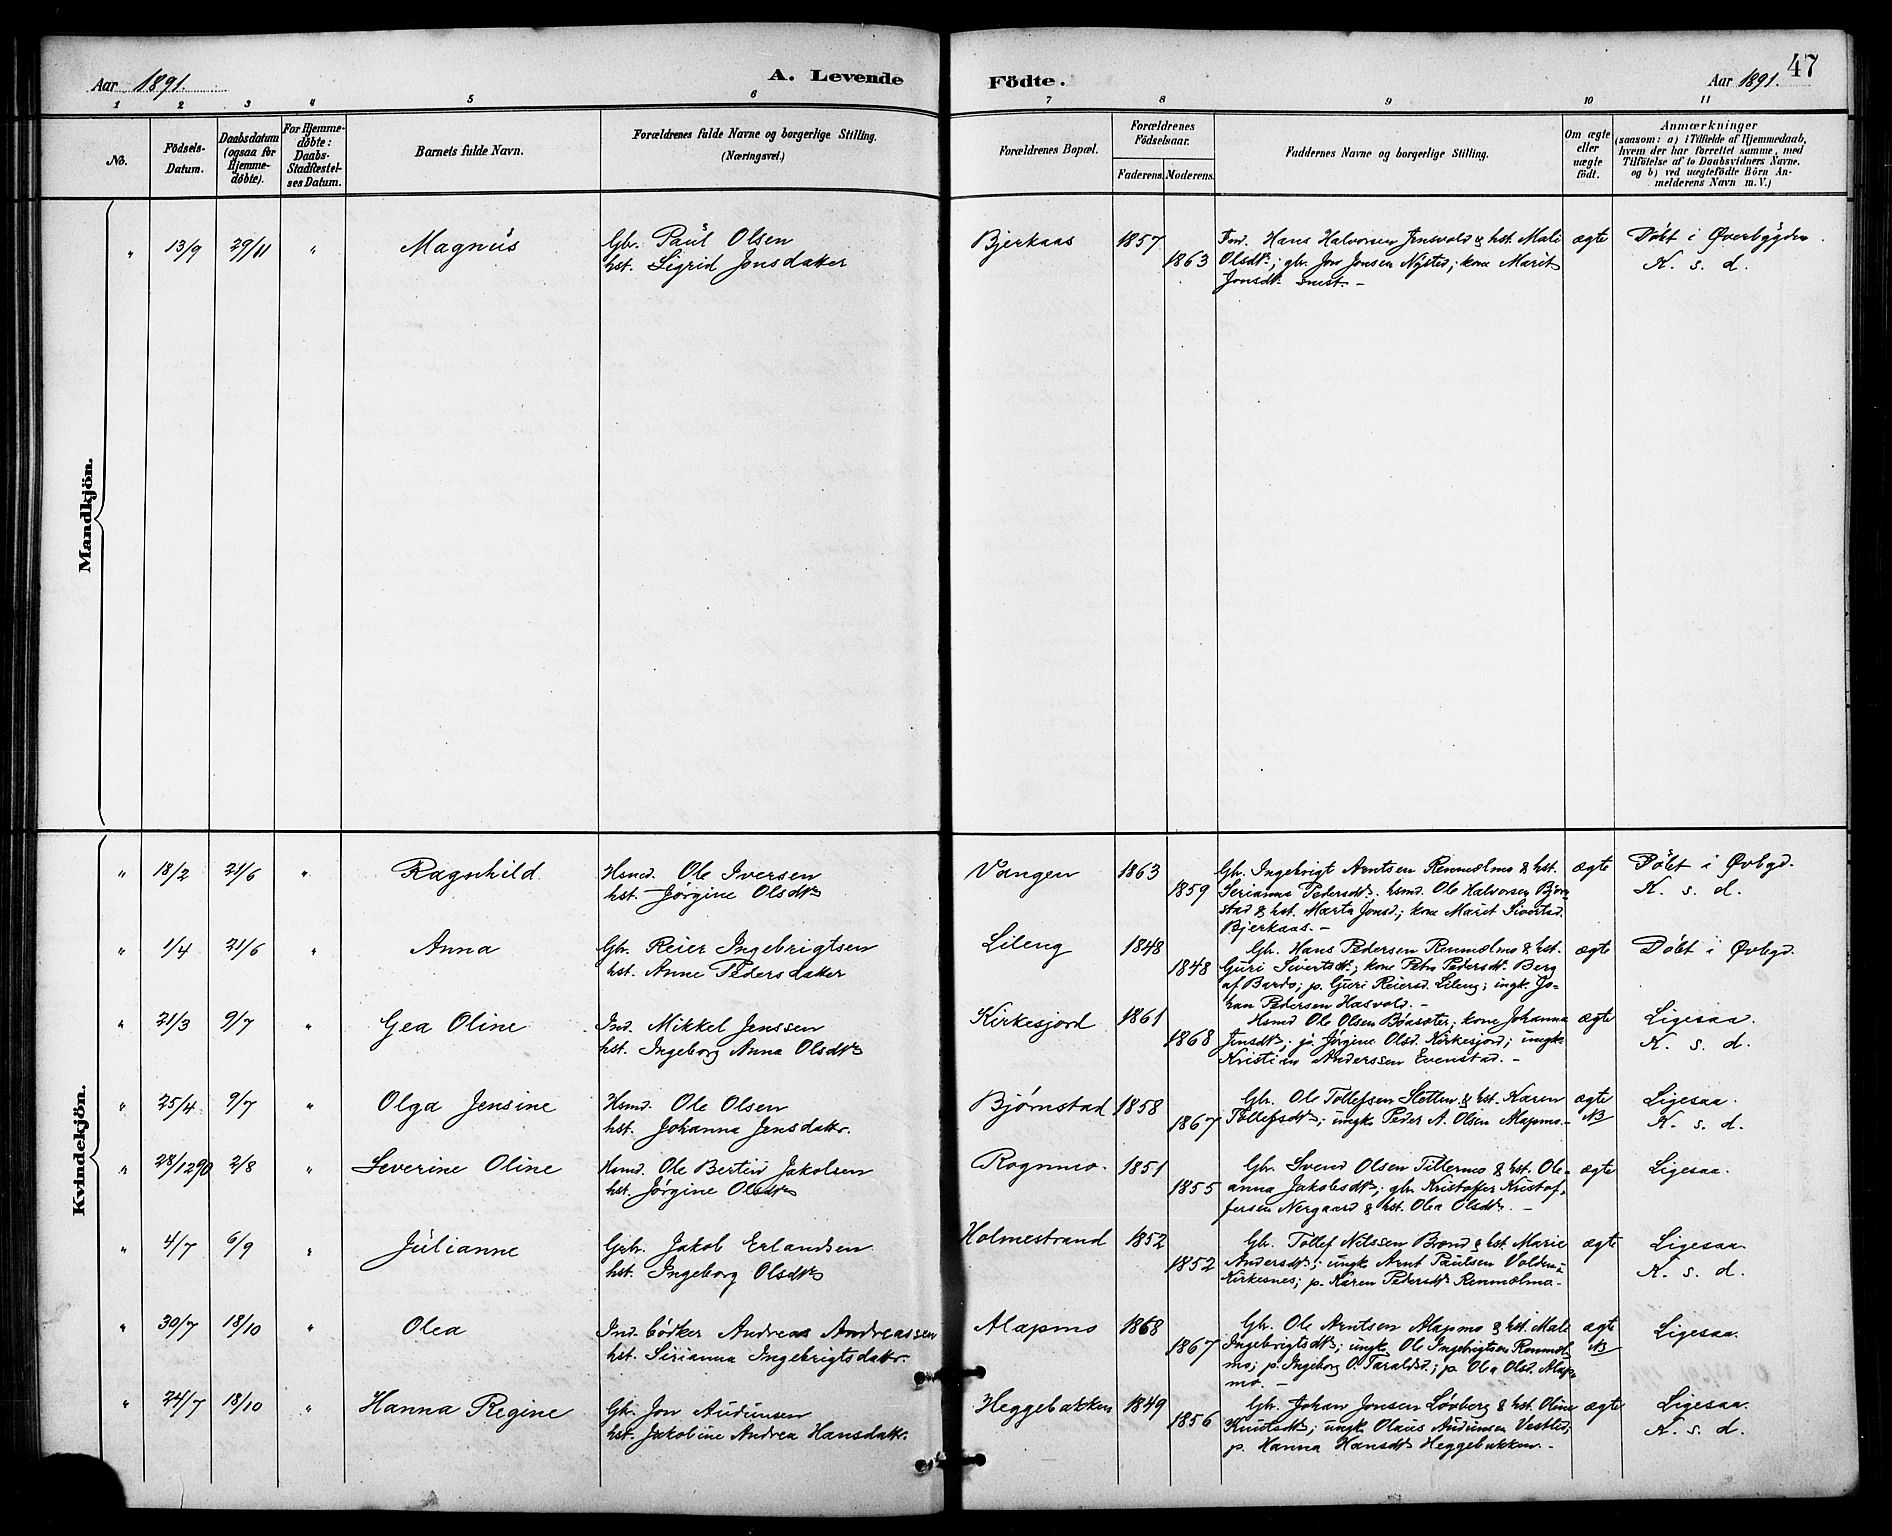 Aar 1891. A. Levende Födte. Aar 1891. 47
1 2 3 4 5 6 7 8 9 10 11
No.
Födsels-
Datum.
Daabsdatum
(ogsaa for
Hjemme-
döbte).
For Hjemme-
döbte:
Daabs-
Stadfæstel-
ses Datum.
Barnets fulde Navn.
Forældrenes fulde Navne og borgerlige Stilling.
(Næringsvei.)
Forældrenes Bopæl.
Forældrenes
Födselsaar.
Faderens. Moderens.
Faddernes Navne og borgerlige Stilling.
Om ægte
eller
uægte
födt.
Anmærkninger
(saasom: a) i Tilfælde af Hjemmedaab,
hvem der har forrettet samme, med
Tilföielse af to Daabsvidners Navne.
og b) ved uægtefödte Börn An-
melderens Navn m. V.)
Mandkjön.
" 13/9 29/11 " Magnus Gbr. Paul Olsen Bjerkaas 1857 Hans Halvorsen & hst. Mali ægte Døbt i Øverbygden
hst. Sigrid Jonsdatter 1863 Olsdtr; gbr. Jon Jonsen Nysted; kone Marit K. s. d.
Jonsdtr
Kvindekjön.
" 18/2 21/6 " Ragnhild Hsmd. Ole Iversen Vangen 1863 Gbr. Ingebrigt Arntsen Renmælmo & hst. ægte Døbt i Øvbgd.
hst. Jørgine Olsdtr 1859 Serianna Pedersdtr. hsmd. Ole Halvorsen Bjørn- K. s. d.
stad & hst. Marta Jonsd; kone Marit Sivertsd.
Bjerkaas. -
" 1/4 21/6 " Anna Gbr. Reier Ingebrigtsen Lileng 1848 Gbr. Hans Pedersen Renmælmo & hst. ægte Døbt i Øvbgd.
hst. Anne Pedersdatter 1848 Guri Sivertsdtr; kone Petra Pedersdtr Berg
af Bardo; p. Guri Reiersd. Lileng; ungk. Jo-
han Pedersen Hasvold. -
" 21/3 9/7 " Gea Oline Ind. Mikkel Jenssen Kirkesjord 1861 Hsmd Ole Olsen Bøasæter; kone Johanna ægte Ligesaa.
hst. Ingeborg Anna Olsdtr 1868 Jensdtr; pi. Jørgine Olsd. Kirkesjord; ungk. K. s. d.
Kristian Anderssen Evenstad. -
" 25/4 9/7 " Olga Jensine Hsmd. Ole Olsen Bjørnstad 1858 Gbr. Ole Tollefsen Sletten & hst. Karen ægte Ligesaa.
hst. Johanna Jensdattr. 1867 Tollefsdtr; ungk. Peder A. Olsen Alapmo. - NB K. s. d.
" 28/12 90 2/8 " Severine Oline Hsmd. Ole Bertin Jakobsen Rognmo. 1851 Gbr. Svend Olsen Tillermo & hst. Ole- ægte Ligesaa.
hst. Jørgine Olsdtr 1855 anna Jakobsdtr; gbr. Kristoffer Kristof-
fersen Nergaard & hst. Olea Olsdtr. -
" 4/7 6/9 " Julianne Gbr. Jakob Erlandsen Holmestrand 1852 Gbr. Tollef Nilssen Brænd & hst. Marie ægte Ligesaa.
hst. Ingeborg Olsdtr 1852 Andersdtr; ungk. Arnt Paulsen Volden - K. s. d.
Kirkesnes; p. Karen Pedersdtr Renmælmo. -
" 30/7 18/10 " Olea Ind. bödker Andreas Andreassen Alapmo 1868 Gbr. Ole Arntsen Alapmo & hst. Mali ægte Ligesaa.
hst. Sirianna Ingebrigtsdattr. 1867 Ingebrigtsdtr; ungk. Ole Ingebrigtsen Renmæl- NB
mo; p. Ingeborg O. Taraldsd.; p. Olea Olsd. Alap-
mo. -
" 24/7 18/10 " Hanna Regine Gbr. Jon Audunsen Heggebakken 1849 Gbr. Johan Jonsen Løvberg & hst. Oline ægte Ligesaa.
hst. Jakobine Andrea Hansdattr. 1856 Knutsdtr; ungk. Olaus Audunsen Vestled; K. s. d.
p. Hanna Hansdtr Heggebakken. -